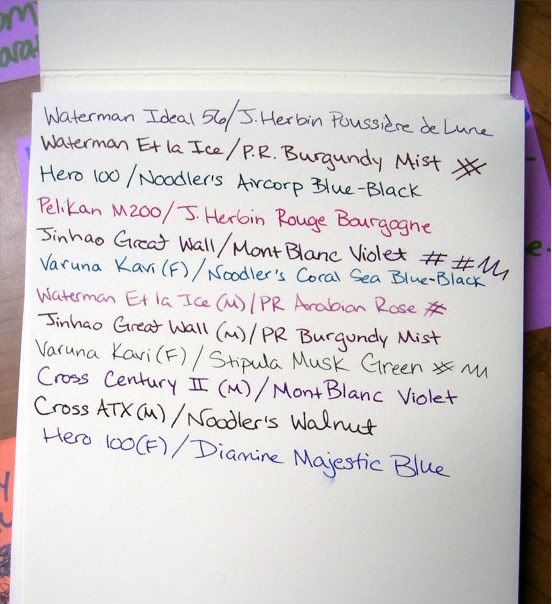 Waterman Ideal 56/J. Herbin Poussière de Lune
Waterman Et la Ice/P.R. Burgundy Mist
Hero 100/Noodler's Aircorp Blue-Black
Pelikan M200/J. Herbin Rouge Bourgogne
Jinhao Great Wall/MontBlanc Violet # #
Varuna Kavi (F)/Noodler's Coral Sea Blue-Black
Waterman Et la Ice (M)/PR Arabian Rose #
Jinhao Great Wall (M)/PR Burgundy Mist
Varuna Kavi (F)/Stipula Musk Green
Cross Century II (M)/MontBlanc Violet
Cross ATX (M)/Noodler's Walnut
Hero 100(F)/Diamine Majestic Blue